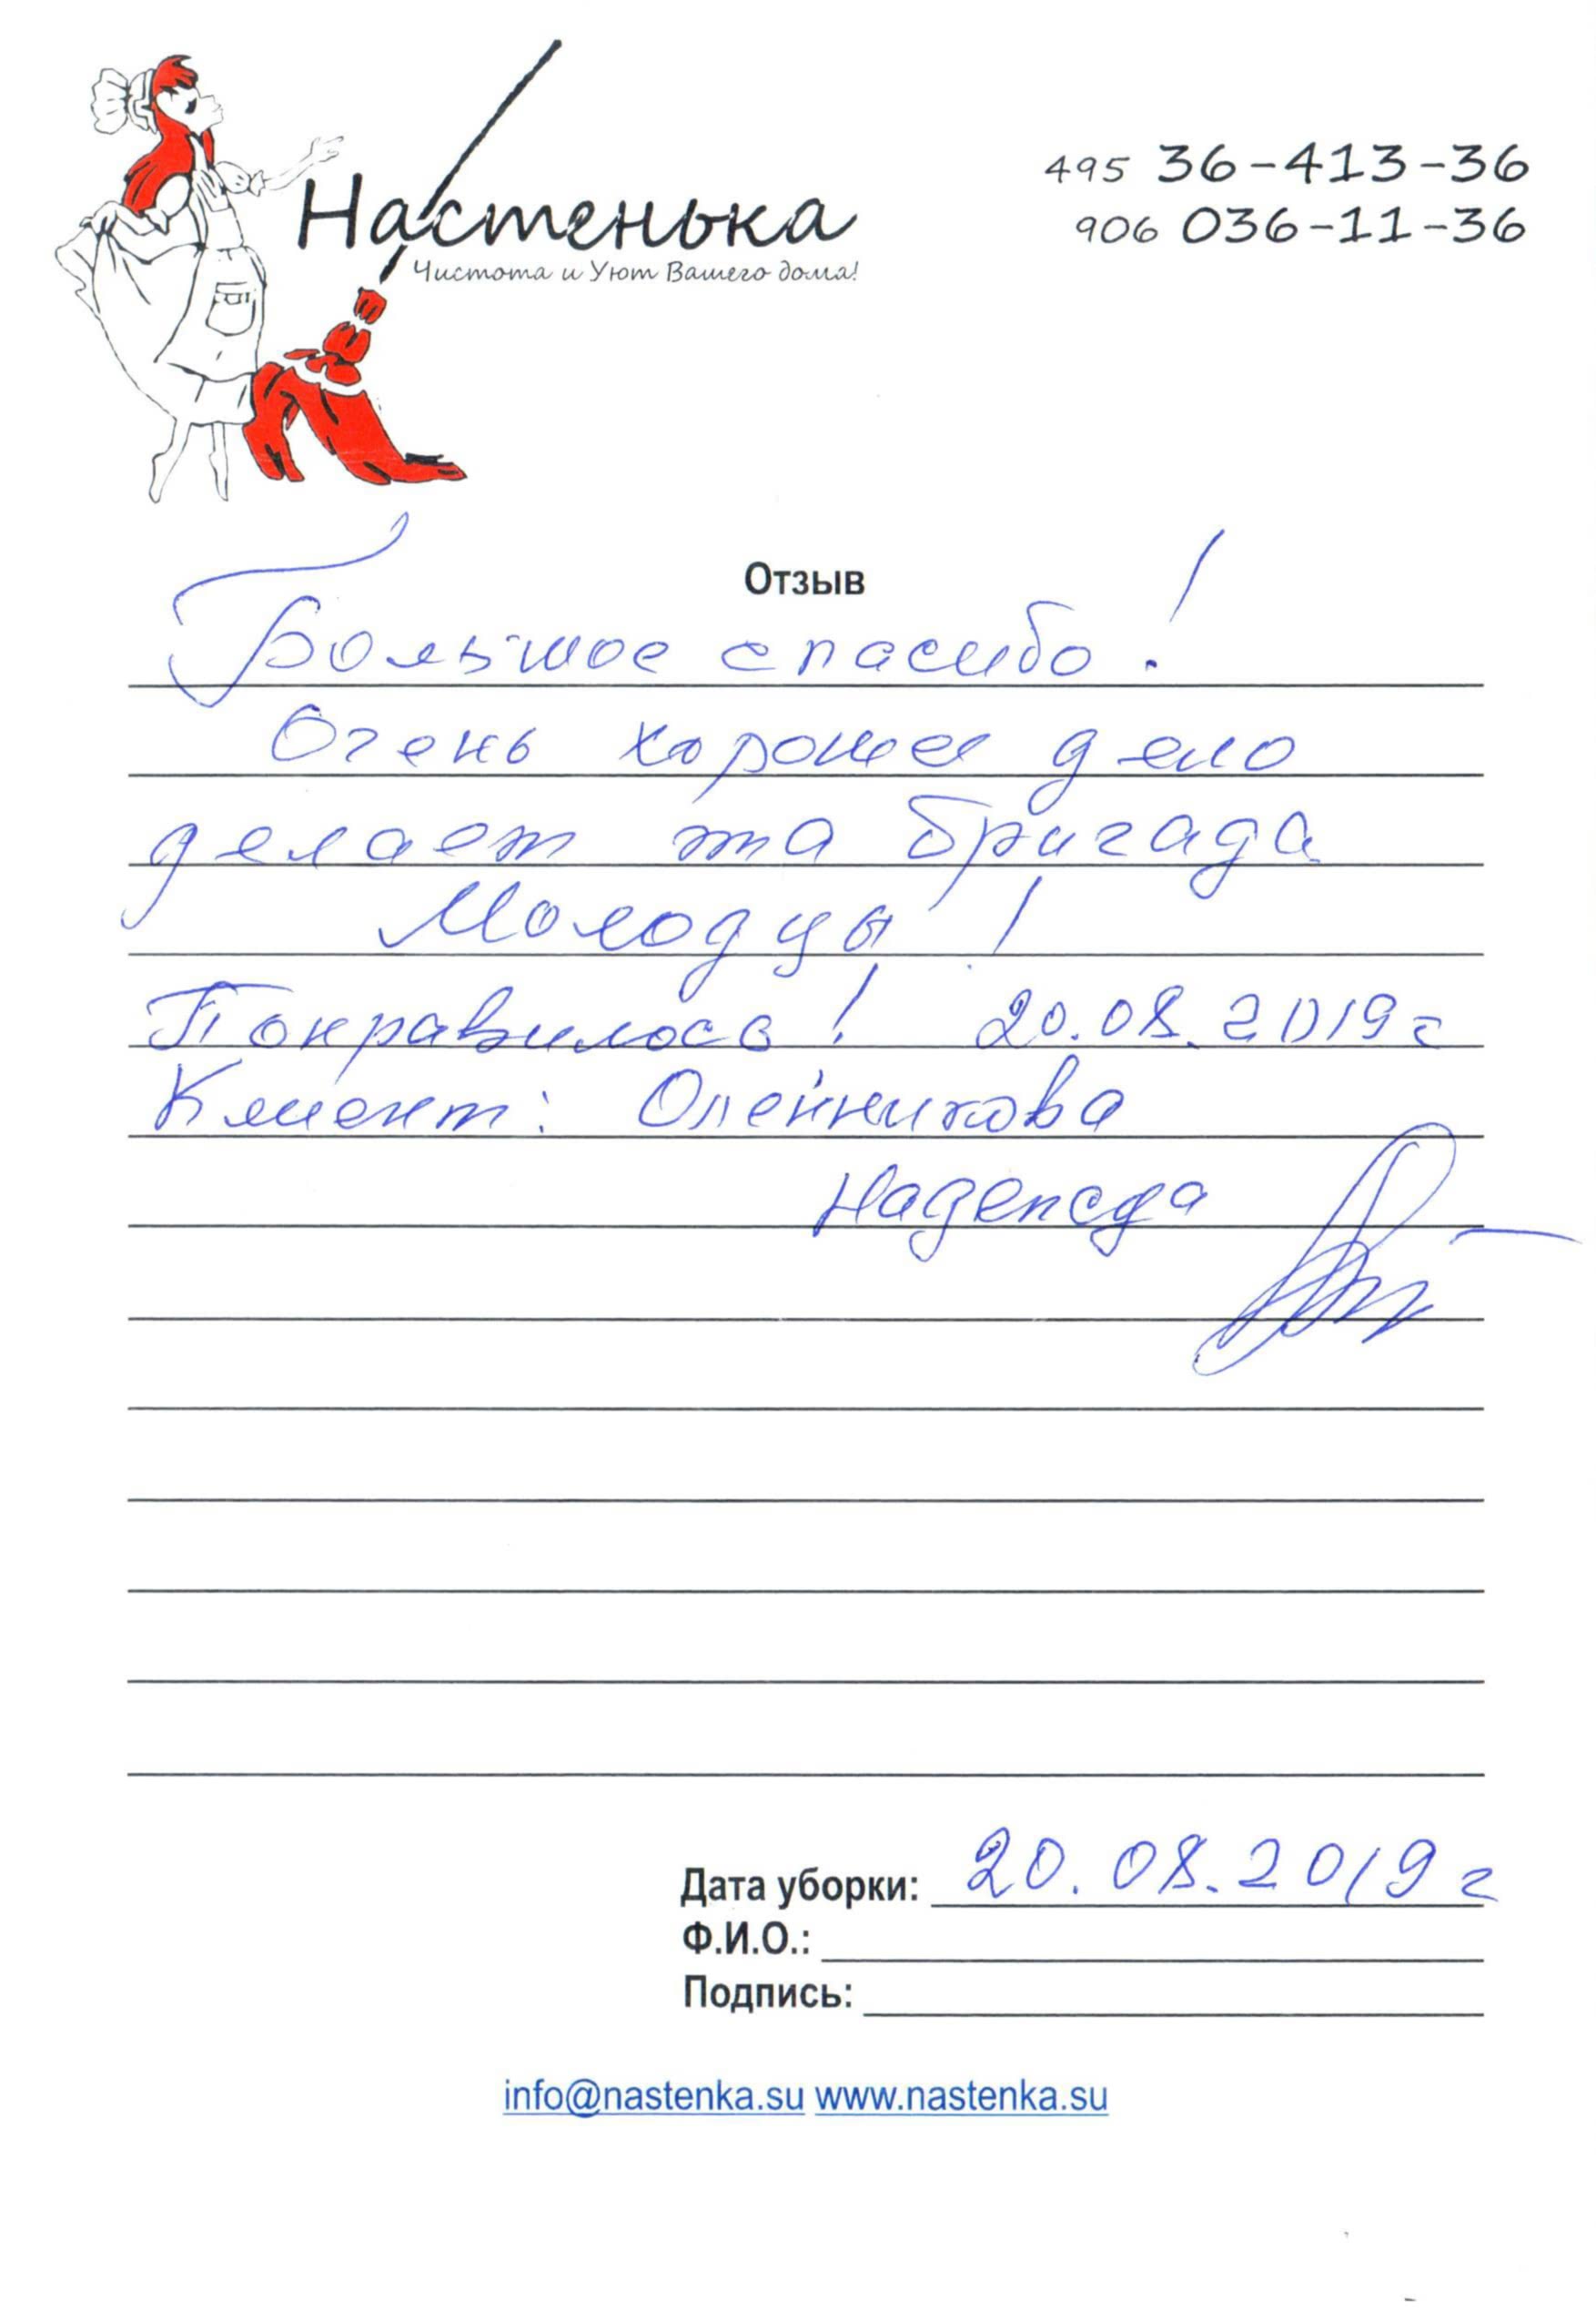 Настенька
Чистота и Уют Вашего дома!
495 36-413-36
906 036-11-36
Отзыв
Большое спасибо!
Очень хорошее дело
делает эта бригада
Молодцы!
Понравилось! 20.08.2019г
Клиент: Олейникова
Надежда
Дата уборки: 20.08.2019г
Ф.И.О.:
Подпись:
info@nastenka.su www.nastenka.su